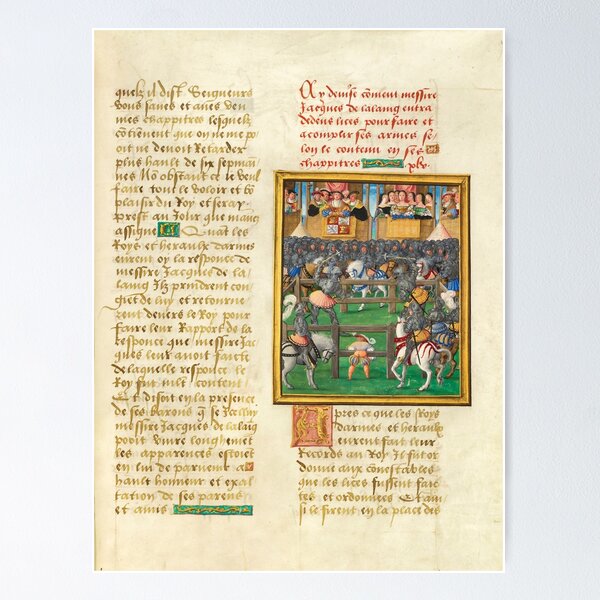 quelz il dist Seigneurs
vous saves et aves veu
mes chappitres lesquelz
contienent que on ne me po
oit ne denoit Retarder
plus hault de six sepmai
nes No obstant ce ie veul
faire tout le voloir et bō
plaisir du Roy et seray
prest au Jour que mavez
assigne Quāt les
Roys et heraulx darmes
eurent oy la responce de
messire Jacques de la
laing Ilz prindrent con
get de luy et retourne
rent devers le Roy pour
faire leur Rapport de la
responce que messire Jac
ques leur avoit faicte
de laquelle responce le
Roy fut trēs content
Et disoit en la presence
de ses barons q̄ se Icelluy
messire Jacques de lalaig
povoit vivre longhemēt
les apparences estoiēt
en lui de parvenir a
hault honneur et exal
tation de ses parens
et amis
Ay devise cōment messire
Jacques de lalaing entra
dedens lices pour faire et
acomplir ses armes se
lon le contenu en ses
chappitres
Apres ce que les Roys
darmes et heraulx
eurent fait leur
Records au Roy Il fut or
donne aux conestables
que les lices fussent faic
tes et ordonnees Et ain
si le firent en la place des